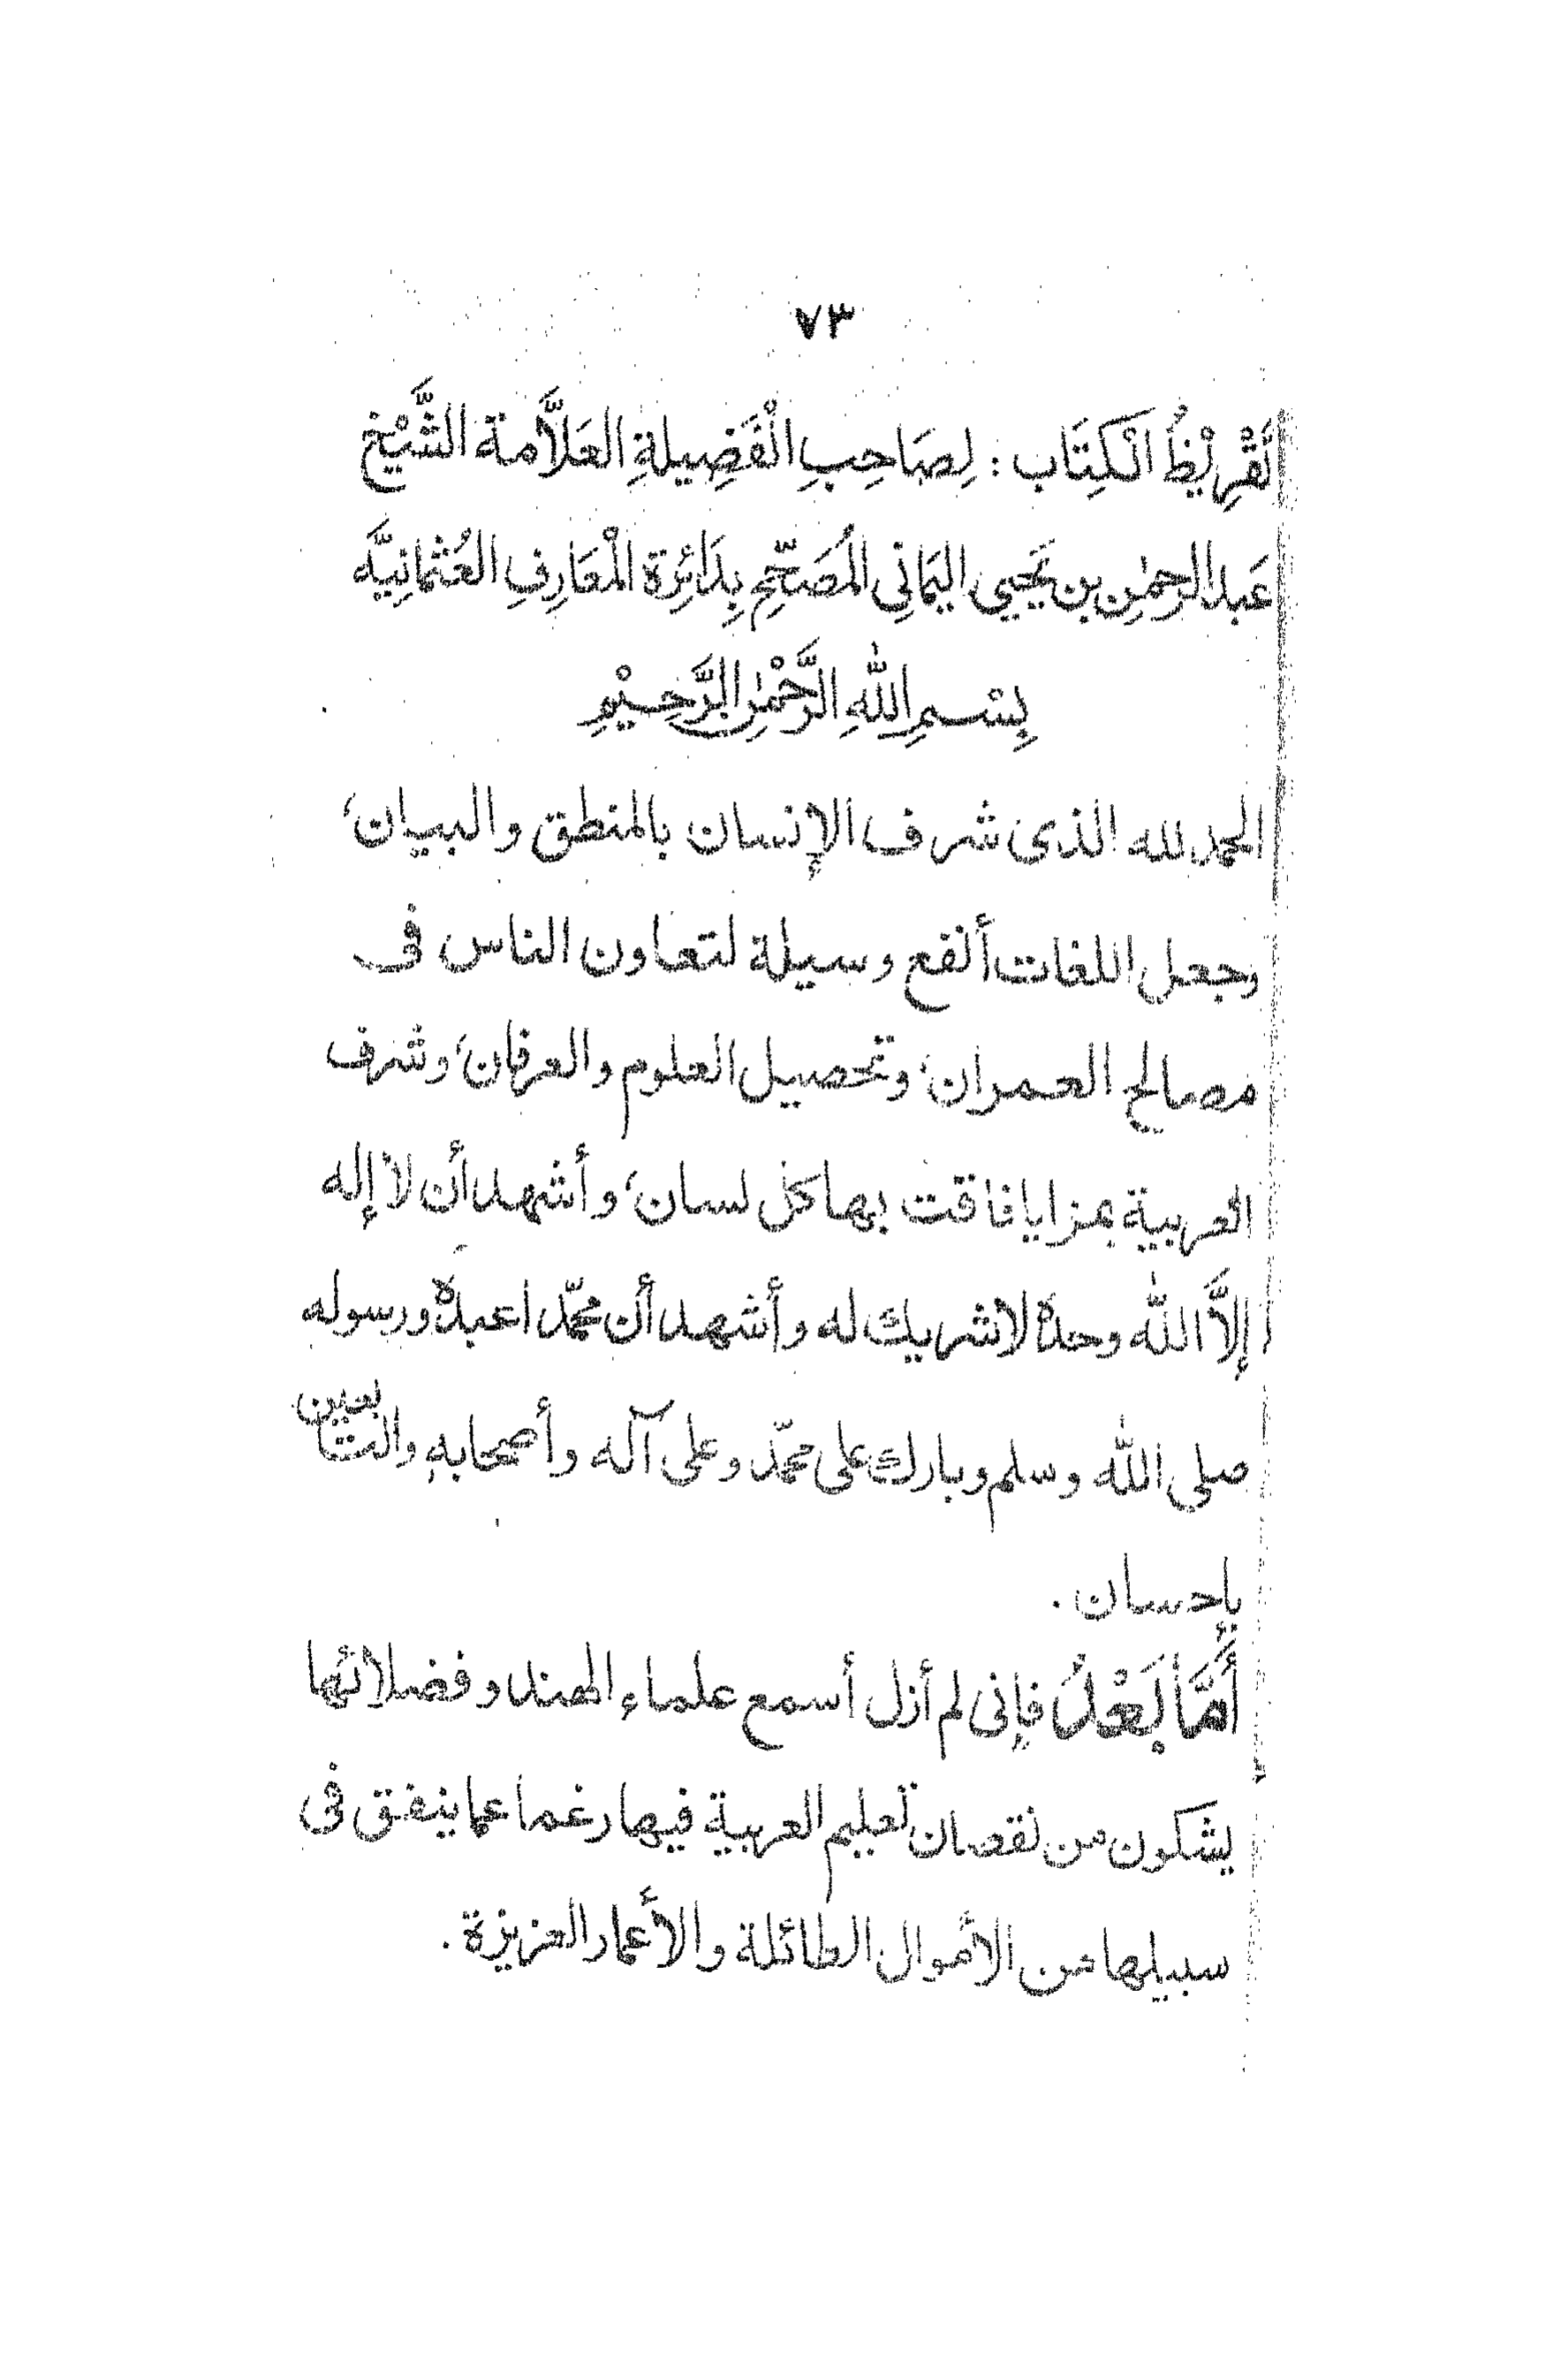 ٧٣
تَقْرِيْظُ الْكِتَاب : لِصَاحِبِ الْفَضِيلَةِ العَلاَّمة الشَّيْخ
عَبدالرحمٰنِ بن يَحيى اليَمَانِي المُصَحِّحِ بِدَائِرَة الْمعَارِفِ العُثمانِيَّه
بِسْمِ اللّٰهِ الرَّحْمٰنِ الرَّحِيْمِ
الحمد لله الذى شرف الإنسان بالمنطق والبيان،
وجعل اللغات أنفع وسيلة لتعاون الناس فى
مصالح العمران، وتحصيل العلوم والعرفان، وشرف
العربية بمزايا فاقت بها كل لسان، وأشهد أن لا إله
إلاَّ اللّٰه وحدهٗ لا شريك له وأشهد أن محمّدا عبدهٗ ورسوله
صلى اللّٰه وسلم وبارك على محمّد وعلى آله وأصحابهِ والتابعين
بإحسان .
أَمَّا بَعْدُ فإنى لم أزل أسمع علماء الهند وفضلائها
يشكون من نقصان تعليم العربية فيها رغما عما ينفق فى
سبيلها من الأموال الطائلة والأَعمار العزيزة .